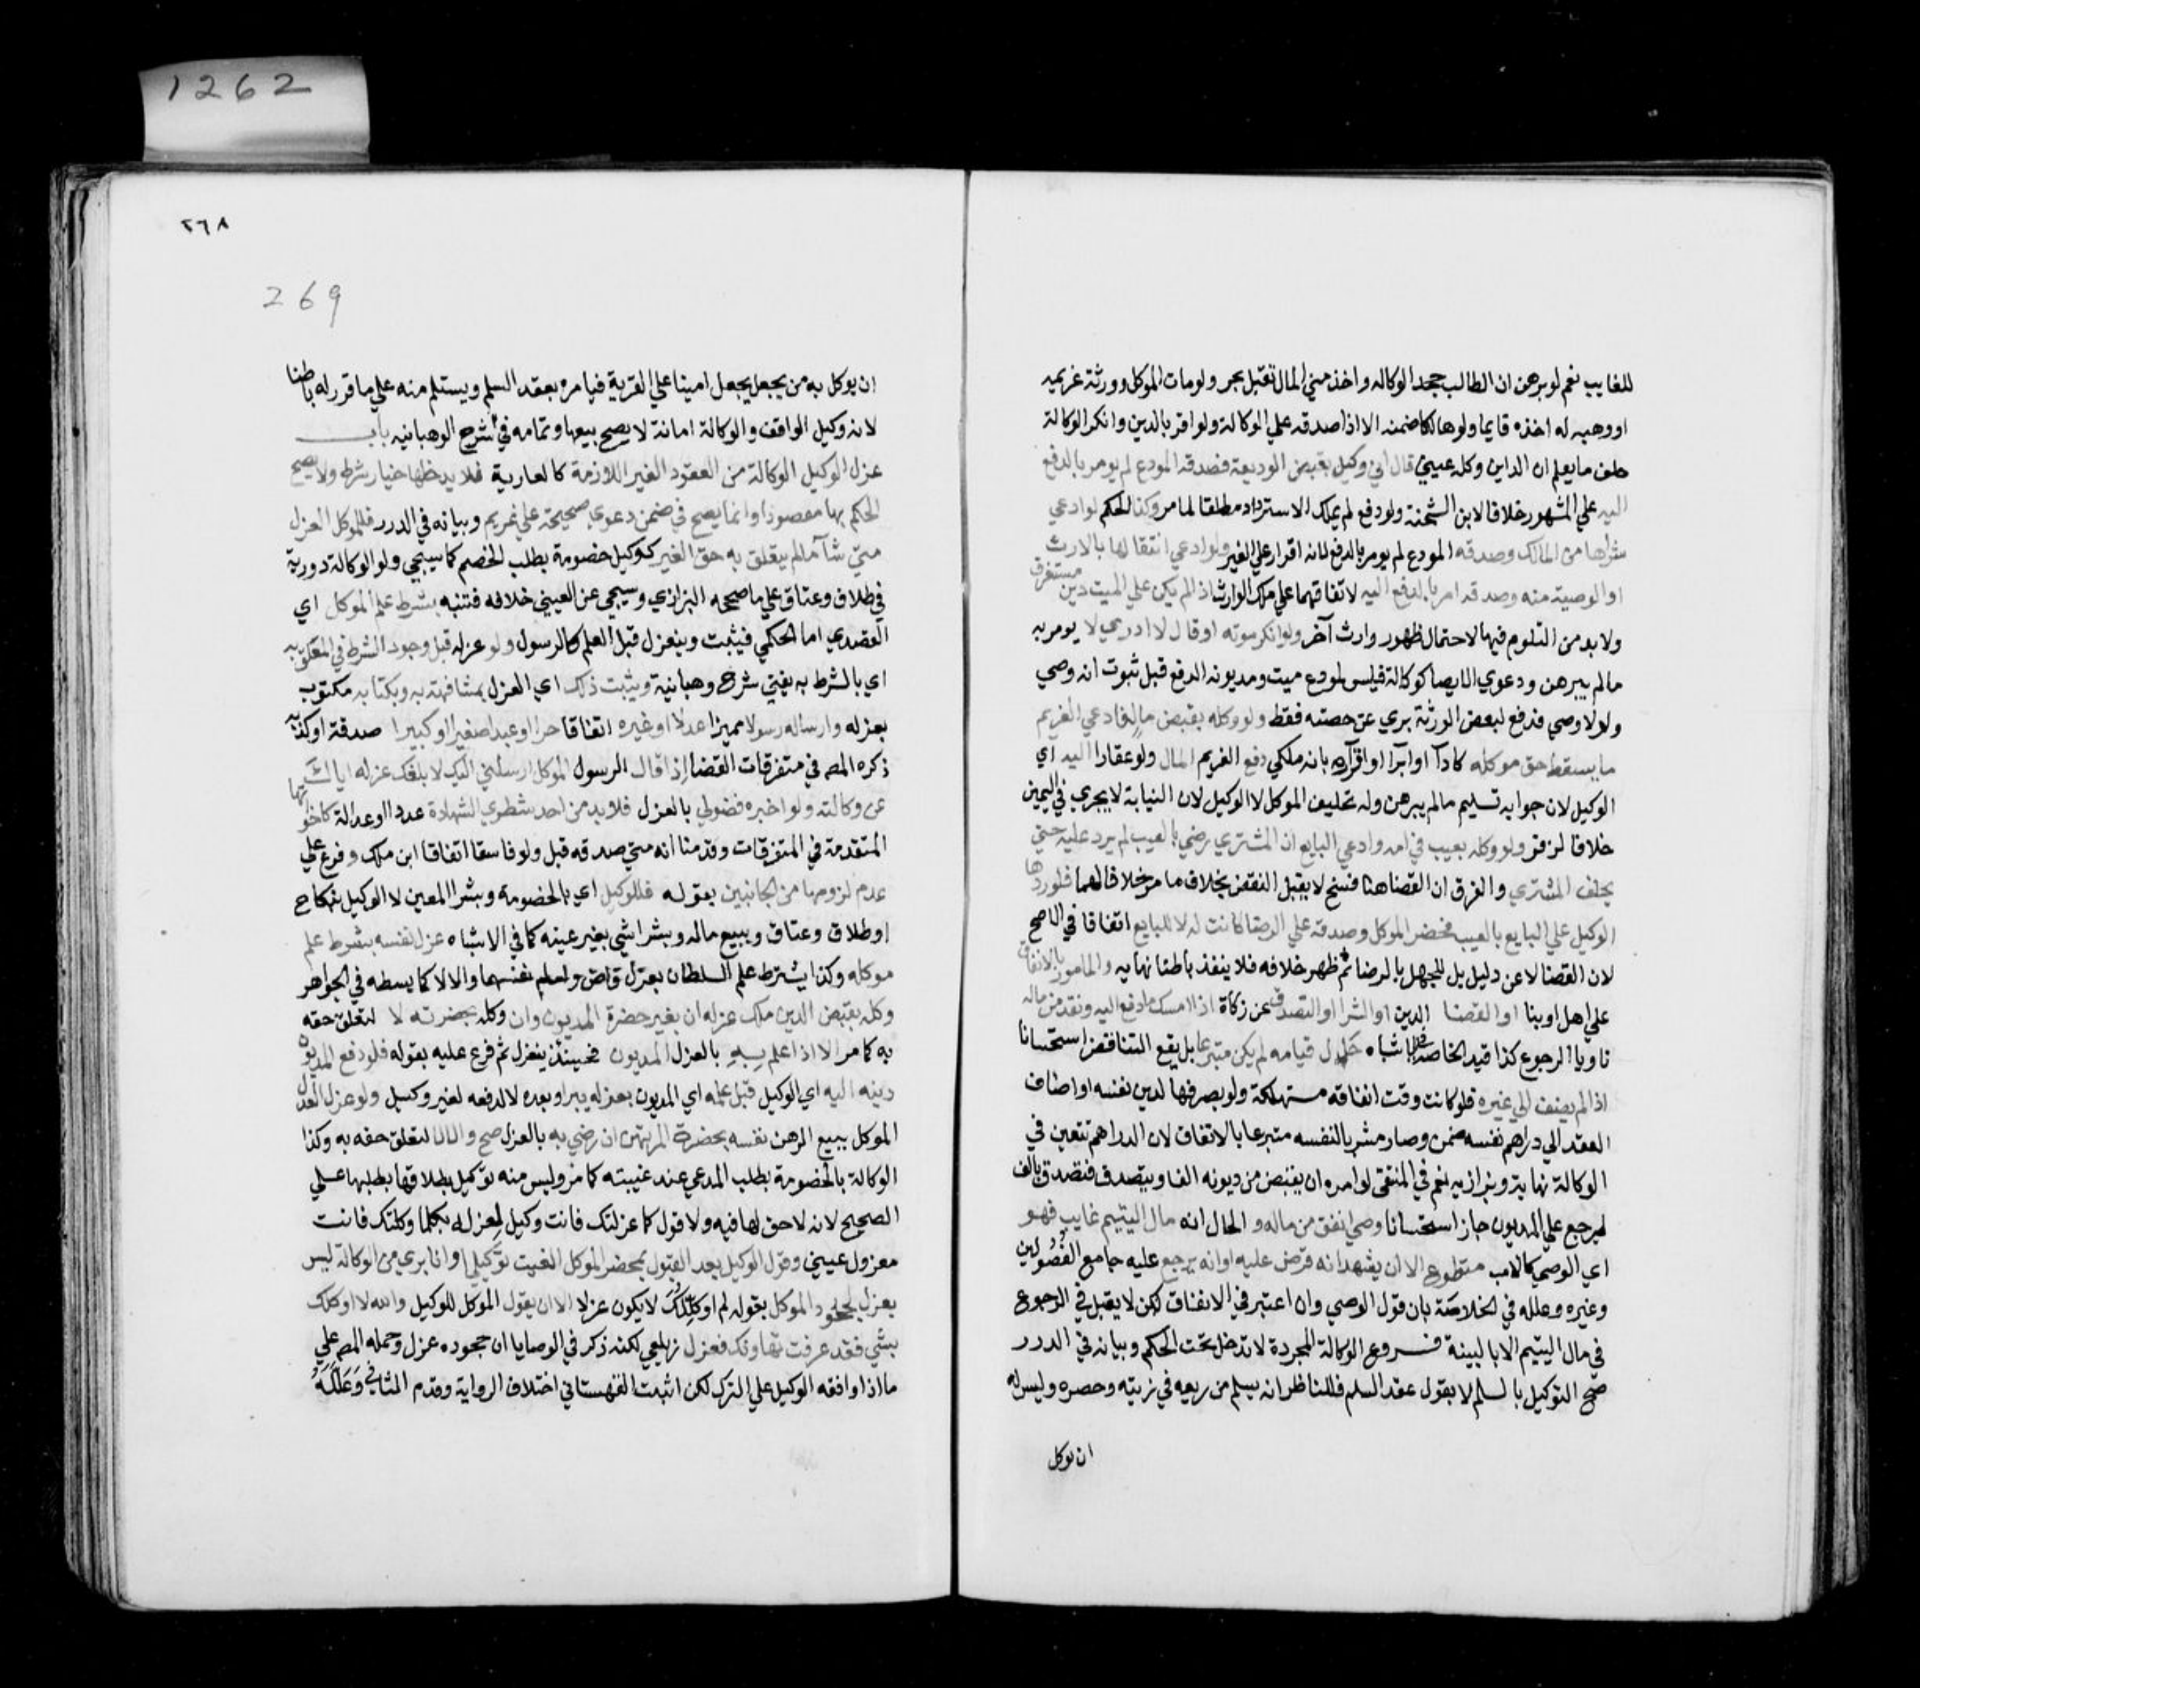 1262
للغايب نعم لو برهن ان الطالب جحد الوكاله واخذ مني المال تقبل بحر ولو مات الموكل وورثة غريمه
او وهبه له اخذه قايما ولو هالكا ضمنه الا اذا صدقه علي الوكالة ولو اقر بالدين وانكر الوكالة
حلف ما يعلم ان الداين وكله عيني قال اني وكيل بقبض الوديعة فصدقه المودع لم يومر بالدفع
اليه علي المشهور خلافا لابن الشحنة ولو دفع لم يملك الاسترداد مطلقا لما مر وكذا الحكم لو ادعي
شراها من المالك وصدقه المودع لم يومر بالدفع لانه اقرار علي الغير ولو ادعي انتقالها بالارث
او الوصية منه وصدقه امر بالدفع اليه لاتفاقهما علي ملك الوارث اذا لم يكن علي الميت دين مستغرق
ولا بد من التلوم فيهما لاحتمال ظهور وارث آخر ولو انكر موته او قال لا ادري لا يومر به
مالم يبرهن ودعوي الايصا كوكالة فليس لمودع ميت ومديونه الدفع قبل ثبوت انه وصي
ولو لا وصي فدفع لبعض الورثة بري عن حصته فقط ولو وكله بقبض مال فادعي الغريم
ما يسقط حق موكله كادآ او ابرآ او اقراره بانه ملكي دفع الغريم المال ولو عقارا اليه اي
الوكيل لان جوابه تسليم مالم يبرهن وله تحليف الموكل لا الوكيل لان النيابة لا يجري في اليمين
خلافا لزفر ولو وكله بعيب في امه وادعي البايع ان المشتري رضي بالعيب لم يرد عليه حتي
يحلف المشتري والفرق ان القضا هنا فسخ لا يقبل النقض بخلاف ما مر خلافا لهما فلو ردها
الوكيل علي البايع بالعيب فحضر الموكل وصدقه علي الرضا كانت له لا للبايع اتفاقا في الاصح
لان القضا لا عن دليل بل للجهل بالرضا ثم ظهر خلافه فلا ينفذ باطنا نهايه والمامور بالانفاق
علي اهل او بنا او القضا الدين او الشرا او التصدق عن زكاة اذا امسك ما دفع اليه ونقد من ماله
ناويا الرجوع كذا قيد الخامسة في الاشباه حال قيامه لم يكن متبرعا بل يقع التناقض استحسانا
اذا لم يضف الي غيره فلو كانت وقت انفاقه مستهلكة ولو بصرفها لدين نفسه او اضاف
العقد الي دراهم نفسه ضمن وصار مشتريا لنفسه متبرعا بالاتفاق لان الدراهم تتعين في
الوكالة نهاية وبزازيه نعم في المنتقي لو امره ان يقبض من ديونه الفا ويتصدق فتصدق بالف
ليرجع علي المديون جاز استحسانا وصي انفق من ماله و الحال انه مال اليتيم غايب فهو
اي الوصي كالاب متطوع الا ان يشهد انه قرض عليه او انه يرجع عليه جامع الفصولين
وغيره وعلله في الخلاصة بان قول الوصي وان اعتبر في الانفاق لكن لا يقبل في الرجوع
في مال اليتيم الا بالبينة فــروع الوكالة المجردة لا تدخل تحت الحكم وبيانه في الدرر
صح التوكيل بالسلم لا بقول عقد السلم فللناظر انه يسلم من ريعه في زيته وحصره وليس له
ان يوكل
٢٦٨
269
ان يوكل به من يجعل يجعل امينا علي القرية فيامره بعقد السلم ويستلم منه علي ما قرر له باطنا
لانه وكيل الواقف والوكالة امانة لا يصح بيعها وتمامه في شرح الوهبانيه بابــ
عزل الوكيل الوكالة من العقود الغير اللازمة كالعارية فلا يدخلها خيار شرط ولا يصح
الحكم بها مقصودا وانما يصح في ضمن دعوي صحيحة علي غريم وبيانه في الدرر فللموكل العزل
متي شآ مالم يتعلق به حق الغير كوكيل خصومة بطلب الخصم كما سيجي ولو الوكالة دورية
في طلاق وعتاق علي ما صححه البزازي وسيجي عن العيني خلافه فتنبه بشرط علم الموكل اي
القصدي اما الحكمي فيثبت وينعزل قبل العلم كالرسول ولو عزله قبل وجود الشرط في المعلق به
اي بالشرط به يفتي شرح وهبانية ويثبت ذلك اي العزل بمشافهته به وبكتابه مكتوب
بعزله وارساله رسولا مميزا عدلا او غيره اتفاقا حرا او عبدا صغيرا او كبيرا صدقه او كذبه
ذكره المص في متفرقات القضا اذا قال الرسول الموكل ارسلني اليك لابلغك عزله اياك
عن وكالته ولو اخبره فضولي بالعزل فلا بد من احد شطري الشهادة عددا او عدالة كاخواتها
المتقدمة في المتفرقات وقدمنا انه متي صدقه قبل ولو فاسقا اتفاقا ابن ملك وفرع علي
عدم لزومها من الجانبين بقوله فللوكيل اي بالخصومة وبشرا المعين لا الوكيل بنكاح
او طلاق وعتاق وببيع ماله وبشرا شي بغير عينه كما في الاشباه عزل نفسه بشرط علم
موكله وكذا يشترط علم السلطان بعزل قاض وامام نفسهما والا لا كما بسطه في الجواهر
وكله بقبض الدين ملك عزله ان بغير حضرة المديون وان وكله بحضرته لا لتعلق حقه
به كما مر الا اذا علم به بالعزل المديون فحينئذ ينعزل ثم فرع عليه بقوله فلو دفع المديون
دينه اليه اي الوكيل قبل علمه اي المديون بعزله يبرا وبعده لا لدفعه لغير وكيل ولو عزل العدل
الموكل ببيع الرهن نفسه بحضرة المرتهن ان رضي به بالعزل صح والا لا لتعلق حقه به وكذا
الوكالة بالخصومة بطلب المدعي عند غيبته كما مر وليس منه توكيل بطلاقها بطلبها علي
الصحيح لانه لا حق لها فيه ولا قول كلما عزلتك فانت وكيل لعزله بكلما وكلتك فانت
معزول عيني وقول الوكيل بعد القبول بمحضر الموكل الغيت توكيلي او انا بري من الوكالة ليس
بعزل لجحود الموكل بقوله لم اوكلك لا يكون عزلا الا ان يقول الموكل للوكيل والله لا اوكلك
بشي فقد عرفت تهاونك فعزل زيلعي لكنه ذكر في الوصايا ان جحوده عزل وحمله المص علي
ما اذا وافقه الوكيل علي الترك لكن اثبت القهستاني اختلاف الرواية وقدم الثاني وعلله